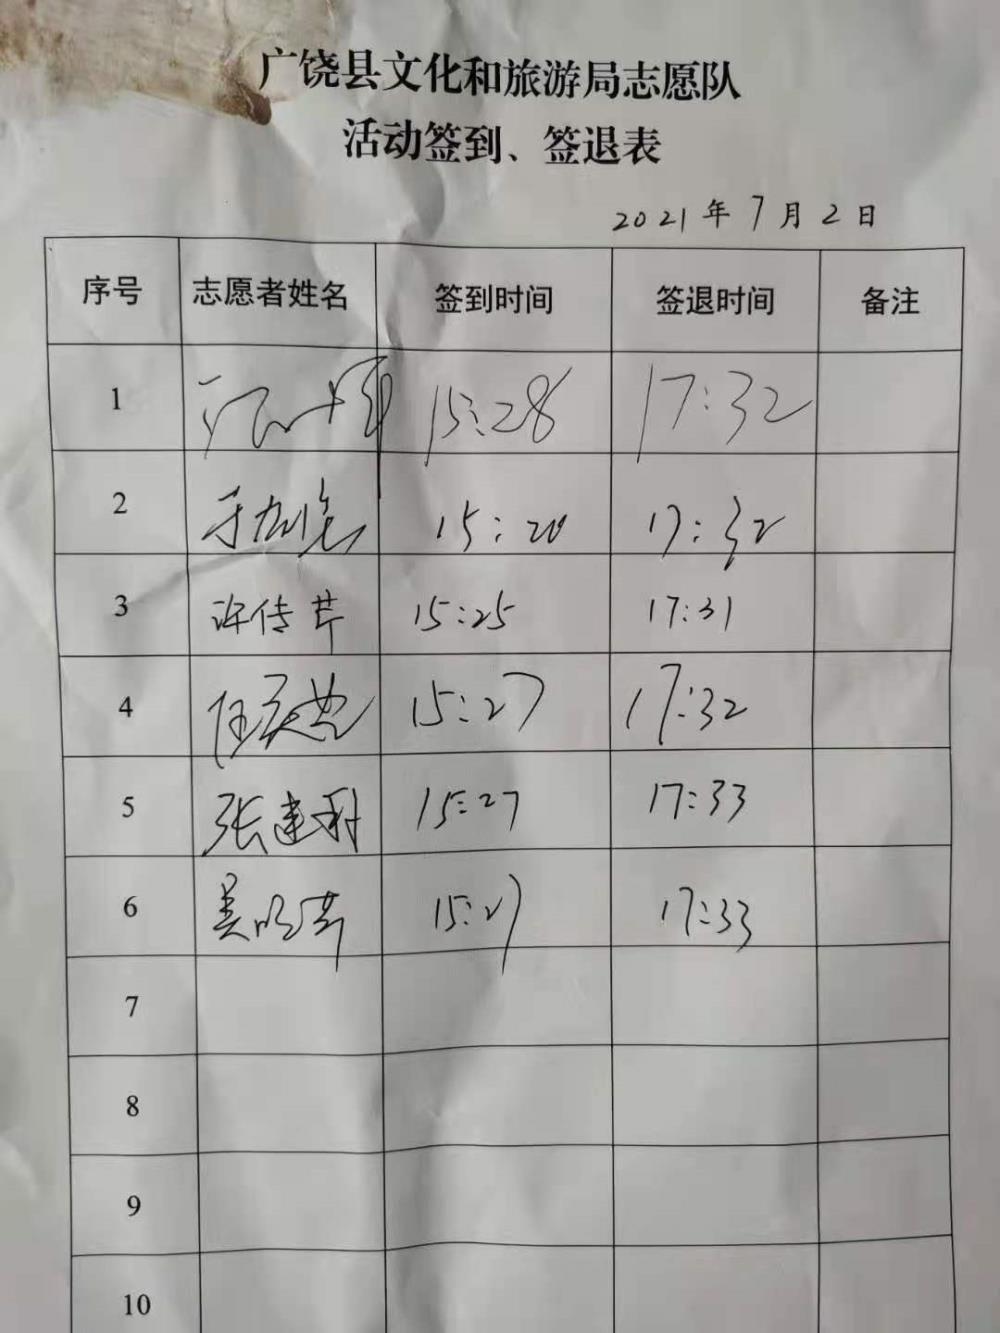 广饶县文化和旅游局志愿队
活动签到、签退表
2021年7月2日
序号 志愿者姓名 签到时间 签退时间 备注
1 15:28 17:32
2 15:20 17:32
3 许传芹 15:25 17:31
4 15:27 17:32
5 张建利 15:27 17:33
6 吴 15:27 17:33
7
8
9
10